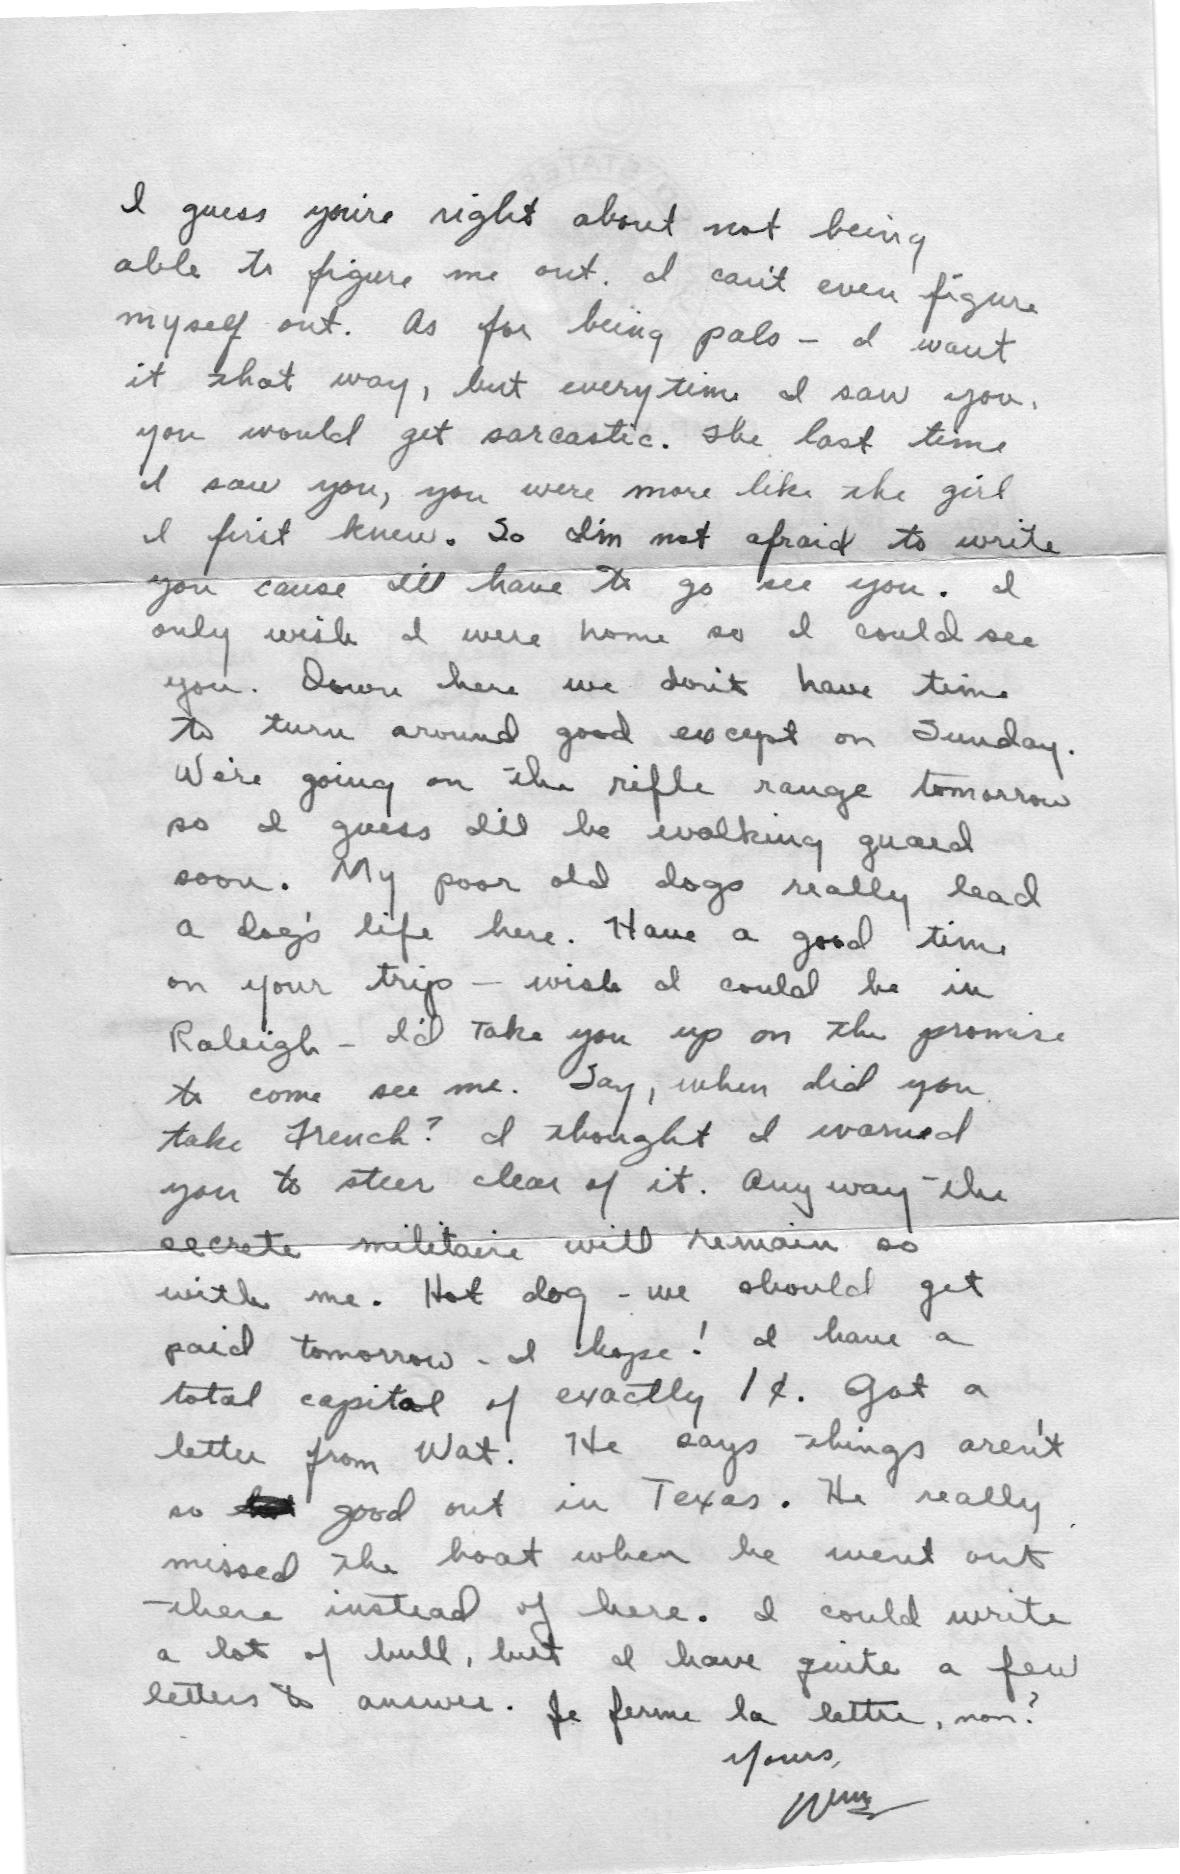 I guess you're right about not being
able to figure me out. I can't even figure
myself out. As for being pals – I want
it that way, but everytime I saw you,
you would get sarcastic. The last time
I saw you, you were more like the girl
I first knew. So I'm not afraid to write
you cause I'll have to go see you. I
only wish I were home so I could see
you. Down here we don't have time
to turn around good except on Sunday.
We're going on the rifle range tomorrow
so I guess I'll be walking guard
soon. My poor old dogs really lead
a dog's life here. Have a good time
on your trip – wish I could be in
Raleigh – I'd take you up on the promise
to come see me. Say, when did you
take French? I thought I warned
you to steer clear of it. Anyway the
secrete militaire will remain so
with me. Hot dog – we should get
paid tomorrow – I hope! I have a
total capital of exactly 1¢. Got a
letter from Wat. He says things aren't
so good out in Texas. He really
missed the boat when he went out
there instead of here. I could write
a lot of bull, but I have quite a few
letters to answer. Je ferme la lettre, non?
Yours,